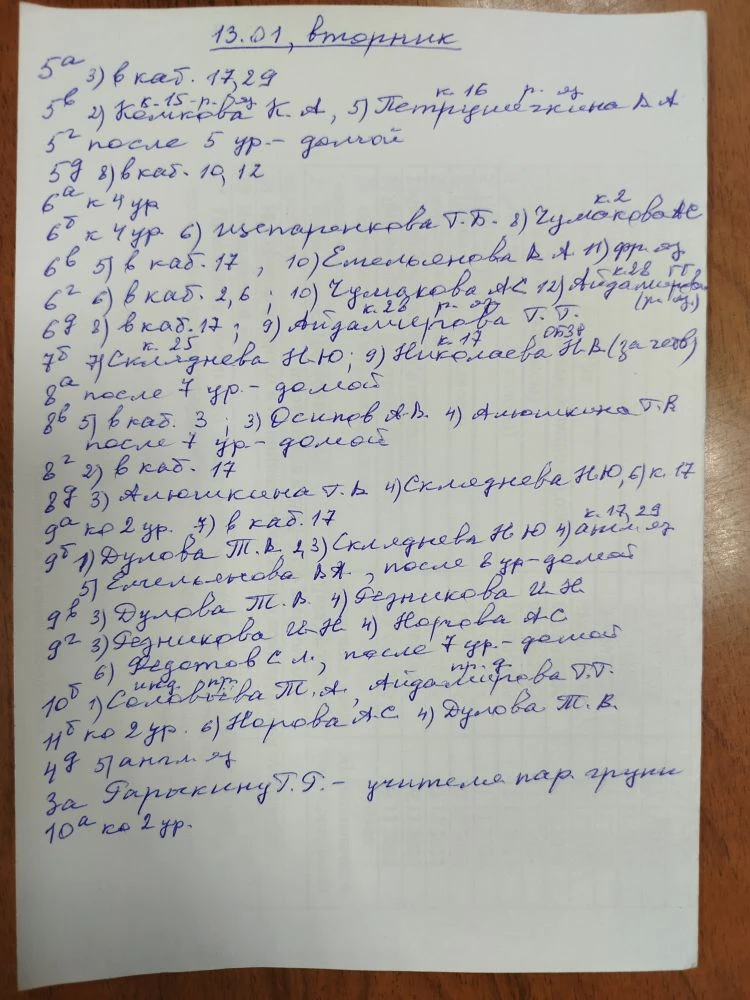 13.01, вторник
5а 3) в каб. 17, 29
к. 15 - р. яз к. 16 р. яз
5в 2) Комкова К. А, 5) Петрушечкина В А
5г после 5 ур. - домой
5д 8) в каб. 10, 12
6а к 4 ур
к. 2
6б к 4 ур. 6) Щепаренкова Т. Б. 8) Чумакова АС
6в 5) в каб. 17 , 10) Емельянова В А. 11) фр. яз
к. 28
6г 6) в каб. 2, 6 ; 10) Чумакова АС 12) Айдамирова ТГ
к. 28 р. яз (р. яз.)
6д 8) в каб. 17 ; 9) Айдамирова Т. Г.
к. 25 к. 17 ОБЗР
7б 7) Скляднева Н. Ю ; 9) Николаева Н. В. (за четв)
8а после 7 ур. - домой
8в 5) в каб. 3 ; 3) Осипов А. В. 4) Алюшкина Г. В
после 7 ур - домой
8г 2) в каб. 17
8д 3) Алюшкина Г. В 4) Скляднева Н. Ю, 6) к. 17
9а ко 2 ур. 7) в каб. 17
к. 17, 29
9б 1) Дулова Т. В. 2,3) Скляднева Н Ю 4) англ. яз
5) Емельянова В А. , после 6 ур - домой
9в 3) Дулова Т. В. 4) Резникова И. Н
9г 3) Резникова И. Н 4) Норова А С
6) Федотов С Л., после 7 ур. - домой
инд. пр. пр. д.
10б 1) Соловьева Т. А, Айдамирова Т. Г.
11б ко 2 ур. 6) Норова А. С 4) Дулова Т. В.
4д 5) англ. яз
За Гарыкину Т. Г. - учителя пар. групп
10а ко 2 ур.